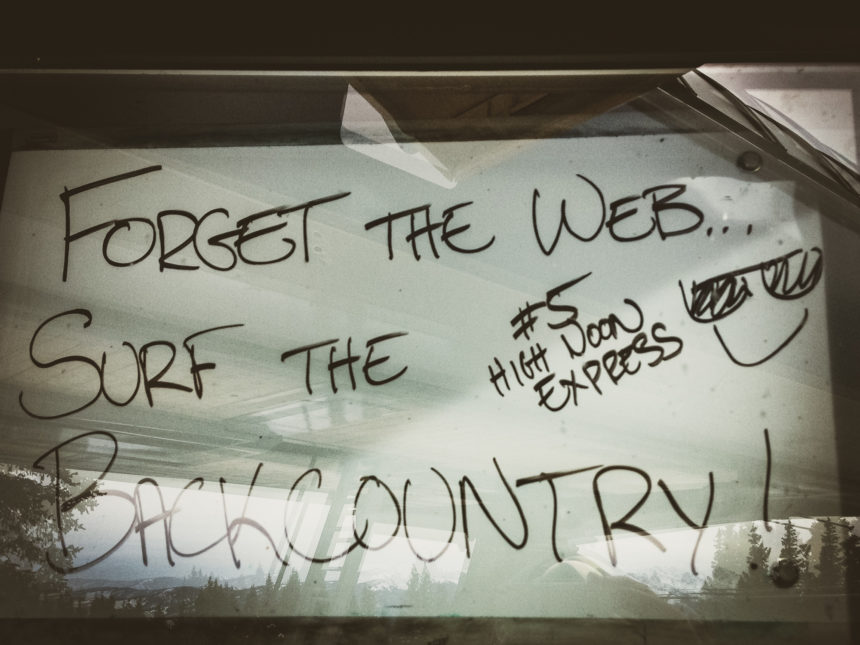 FORGET THE WEB...
SURF THE
BACKCOUNTRY!
#5
HIGH NOON
EXPRESS